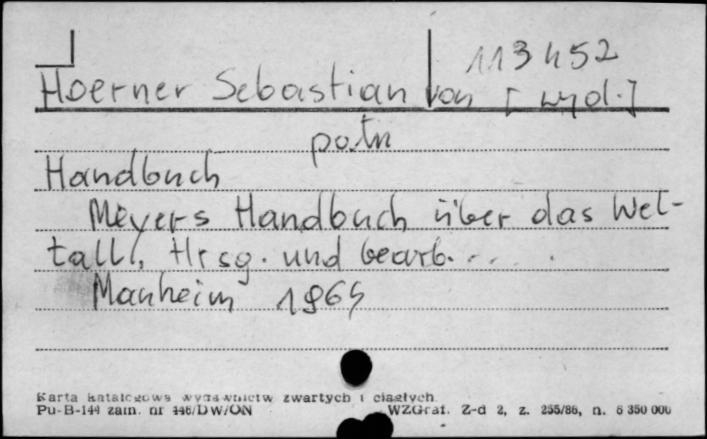 113452
Hoerner Sebastian von [wyd.]
patrz
Handbuch
Meyers Handbuch über das Wel-
tall, Hrsg. und bearb. . . . .
Manheim 1965
Karta katalogowa wydawnictw zwartych i ciągłych.
Pu-B-144 zam. nr 446/DW/ON WZGraf. Z-d 2, z. 255/86, n. 6 350 000